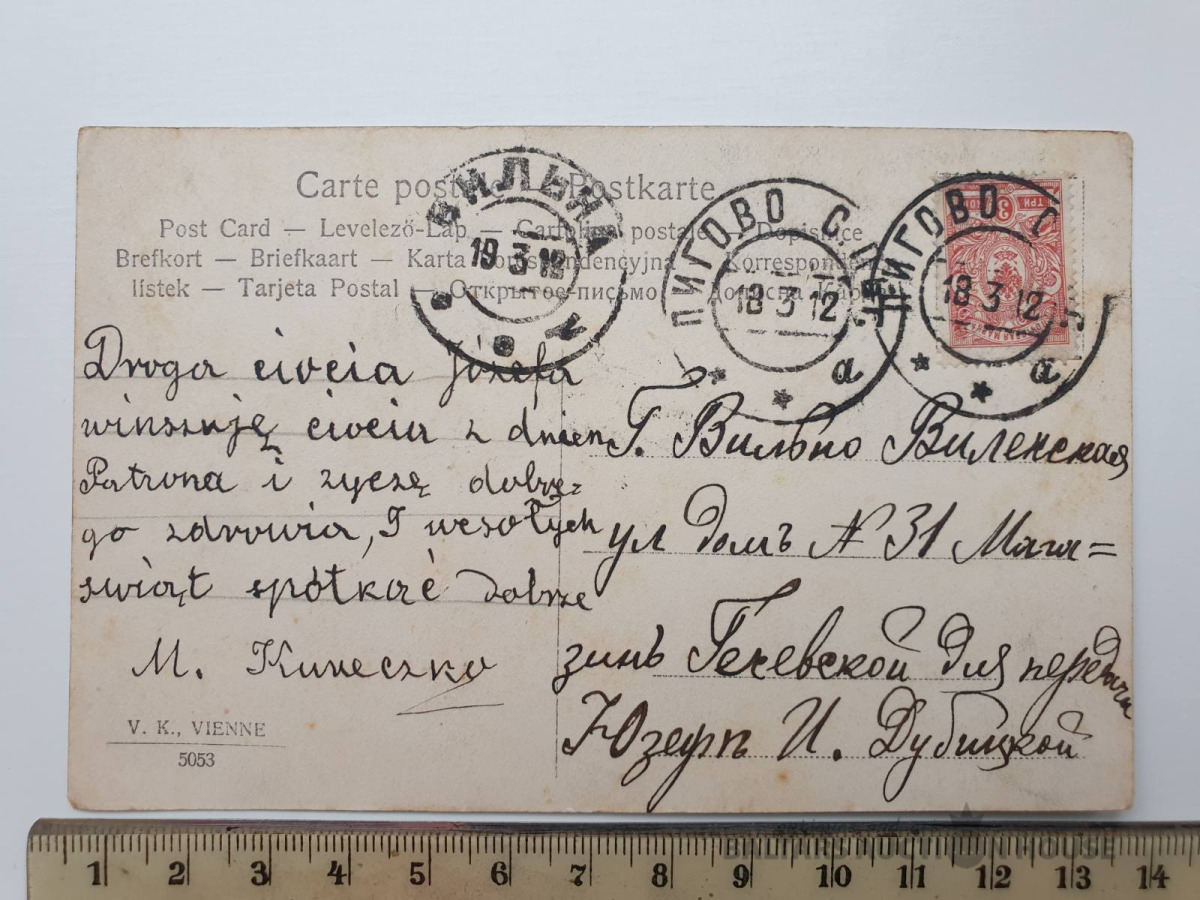 Carte postale — Postkarte
Post Card — Levelező-Lap — Cartolina postale — Dopisnice
Brefkort — Briefkaart — Karta korespondencyjna — Korrespondenční
lístek — Tarjeta Postal — Открытое письмо — Дописна Карта
ВИЛЬНА
19 3 12
ПИГОВО С.
18 3 12
а
ПИГОВО С
18 3 12
а
3
ТРИ
Droga ciocia Józefa
winszuję ciocia z dnien
Patrona i zyczę dobrze-
go zdrowia, I wesołych
swiąt spótkać dobrze
M. Kuneczko
Г. Вильно Виленская
ул домъ N 31 Мага=
зинъ Гечевской для передачи
Юзефѣ И. Дубицкой
V. K., VIENNE
5053
BALTIJAS AUCTION HOUSE
1 2 3 4 5 6 7 8 9 10 11 12 13 14